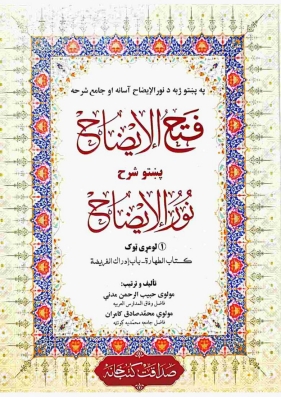 په پښتو ژبه د نورالإيضاح آسانه او جامع شرحه
فتح الإيضاح
پښتو شرح
نور الإيضاح
① لومړی ټوک
کتاب الطهارة - باب إدراك الفريضة
تأليف و ترتيب:
مولوي حبيب الرحمن مدني
فاضل وفاق المدارس العربيه
مولوي محمدصادق کامران
فاضل جامعه محمديه کوئټه
صداقت کتب خانه